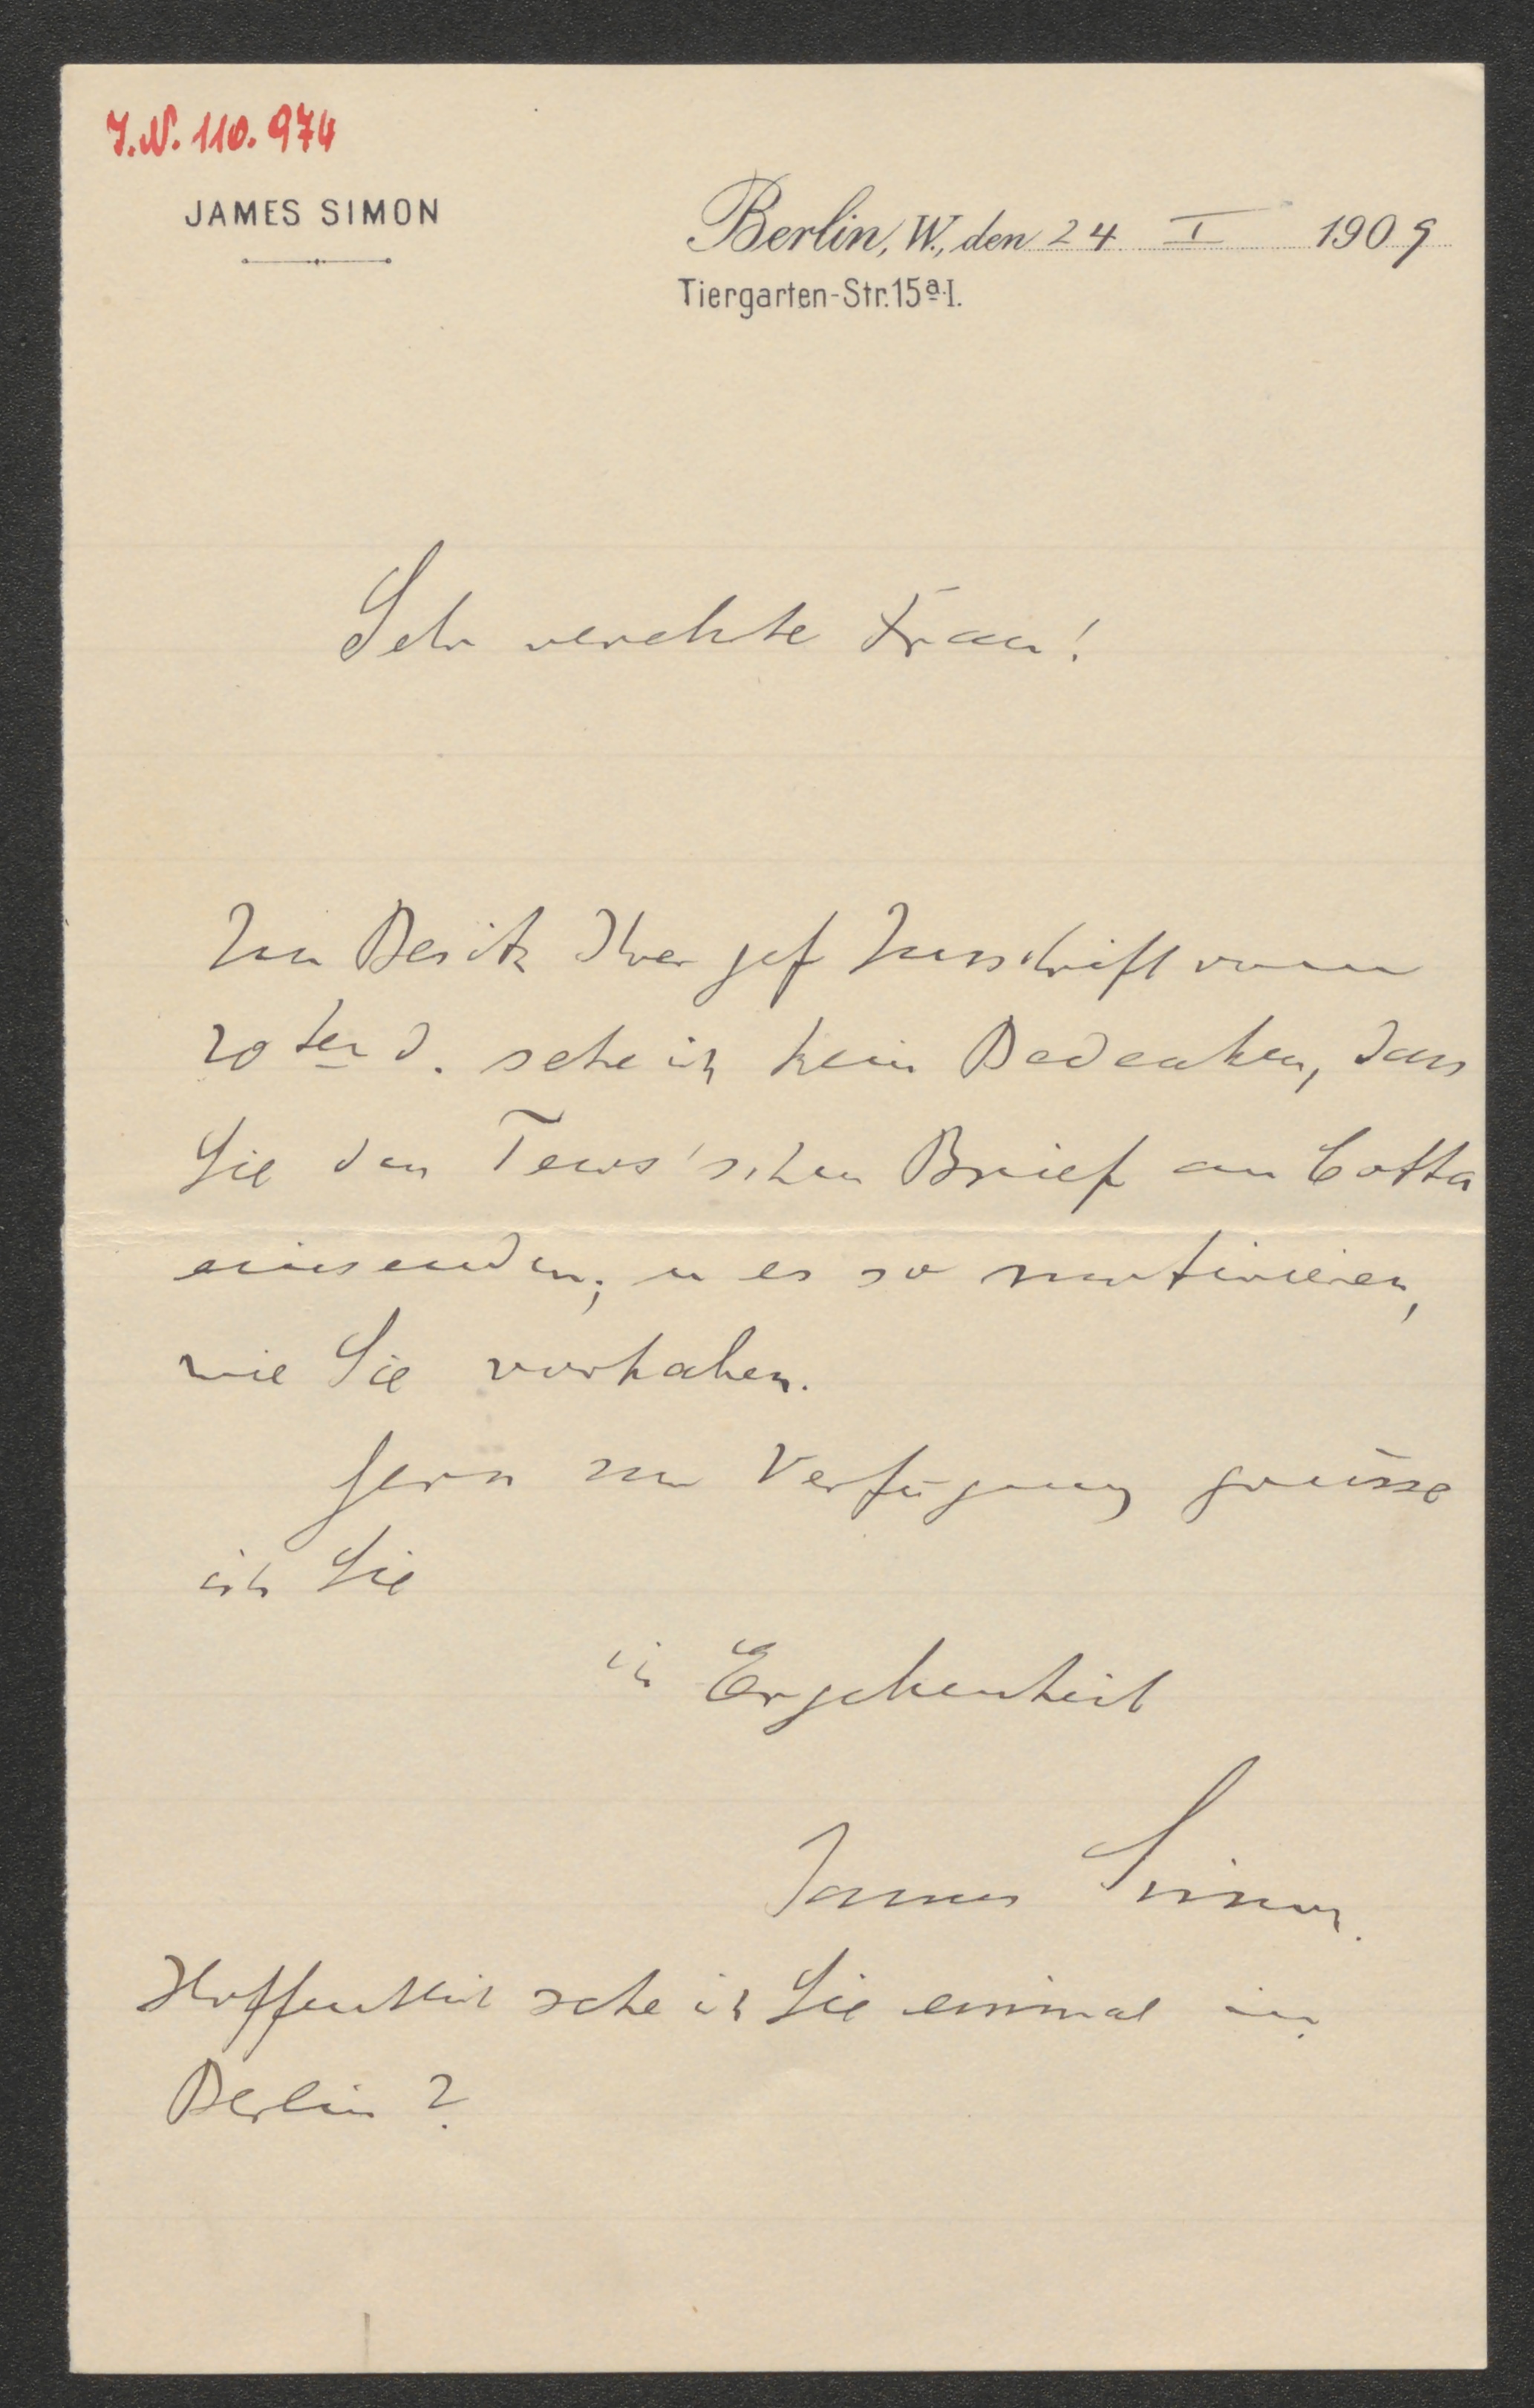 J.N. 110.974
JAMES SIMON
Berlin, W., den 24 I 1909
Tiergarten-Str. 15a I.
Sehr verehrte Frau!
Im Besitz Ihrer gef Zuschrift vom
20ten d. sehe ich kein Bedenken, dass
Sie den Tews'schen Brief an Cotta
einsenden, u es so motivieren,
wie Sie vorhaben.
Gern zur Verfügung grüsse
ich Sie
in Ergebenheit
James Simon.
Hoffentlich sehe ich Sie einmal in
Berlin?